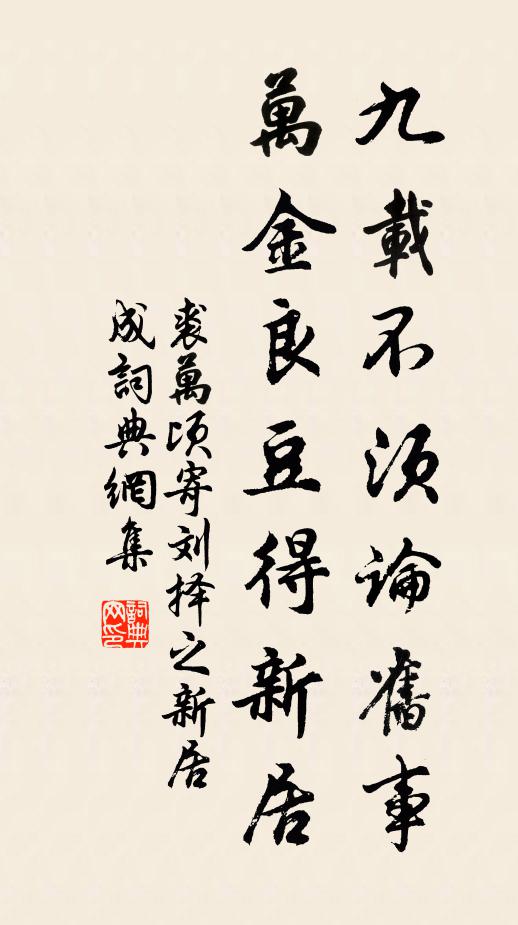 九載不須論舊事
萬金良豆得新居
裘萬頃寄刘择之新居
成詞典網集
詞典网印